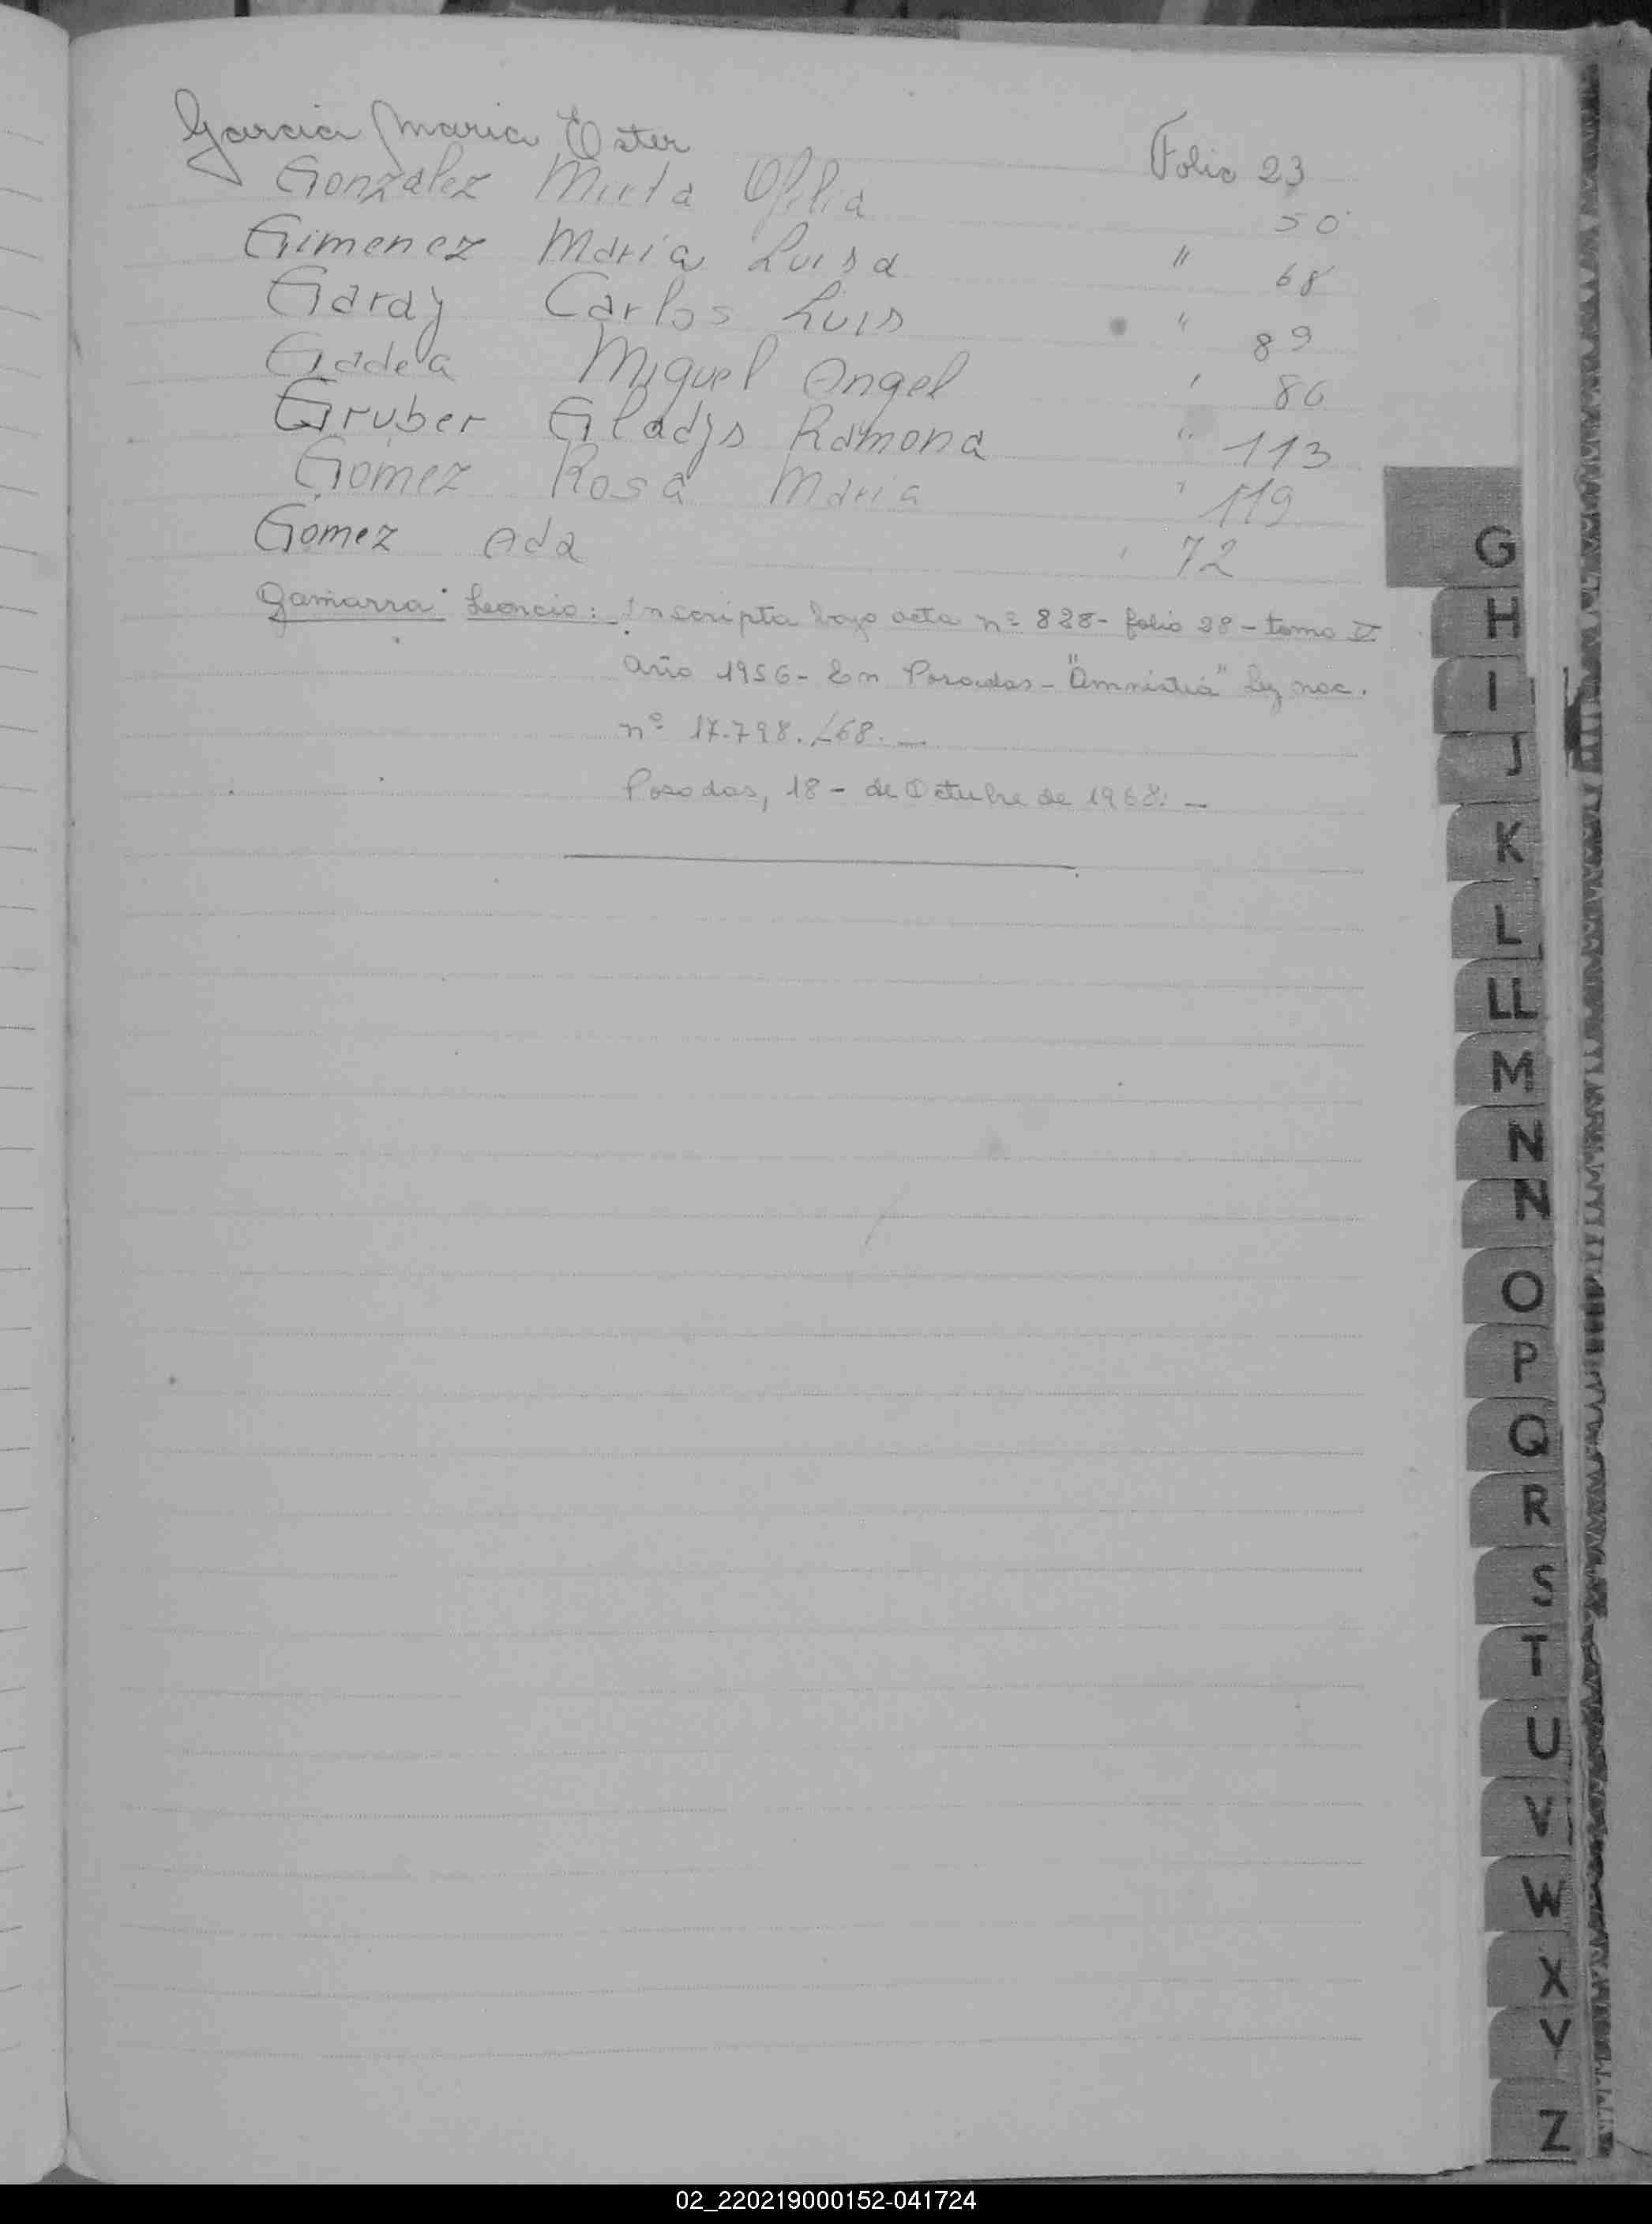 Garcia Maria Ester Folio 23
Gonzalez Mirta Ofilia 50
Gimenez Maria Luisa " 68
Garay Carlos Luis " 89
Gadea Miguel Angel ' 86
Gruber Gladys Ramona " 113
Gomez Rosa Maria " 119
Gomez Ada ' 72
Gamarra Leoncio: Inscripta bajo acta nº 828- folio 28 - tomo V.
Año 1956- En Posadas- "Amnistia" Ley nac.
nº 17.798./68. —
Posadas, 18 - de Octubre de 1968: —
G
H
I
J
K
L
LL
M
N
N
O
P
Q
R
S
T
U
V
W
X
Y
Z
02_220219000152-041724